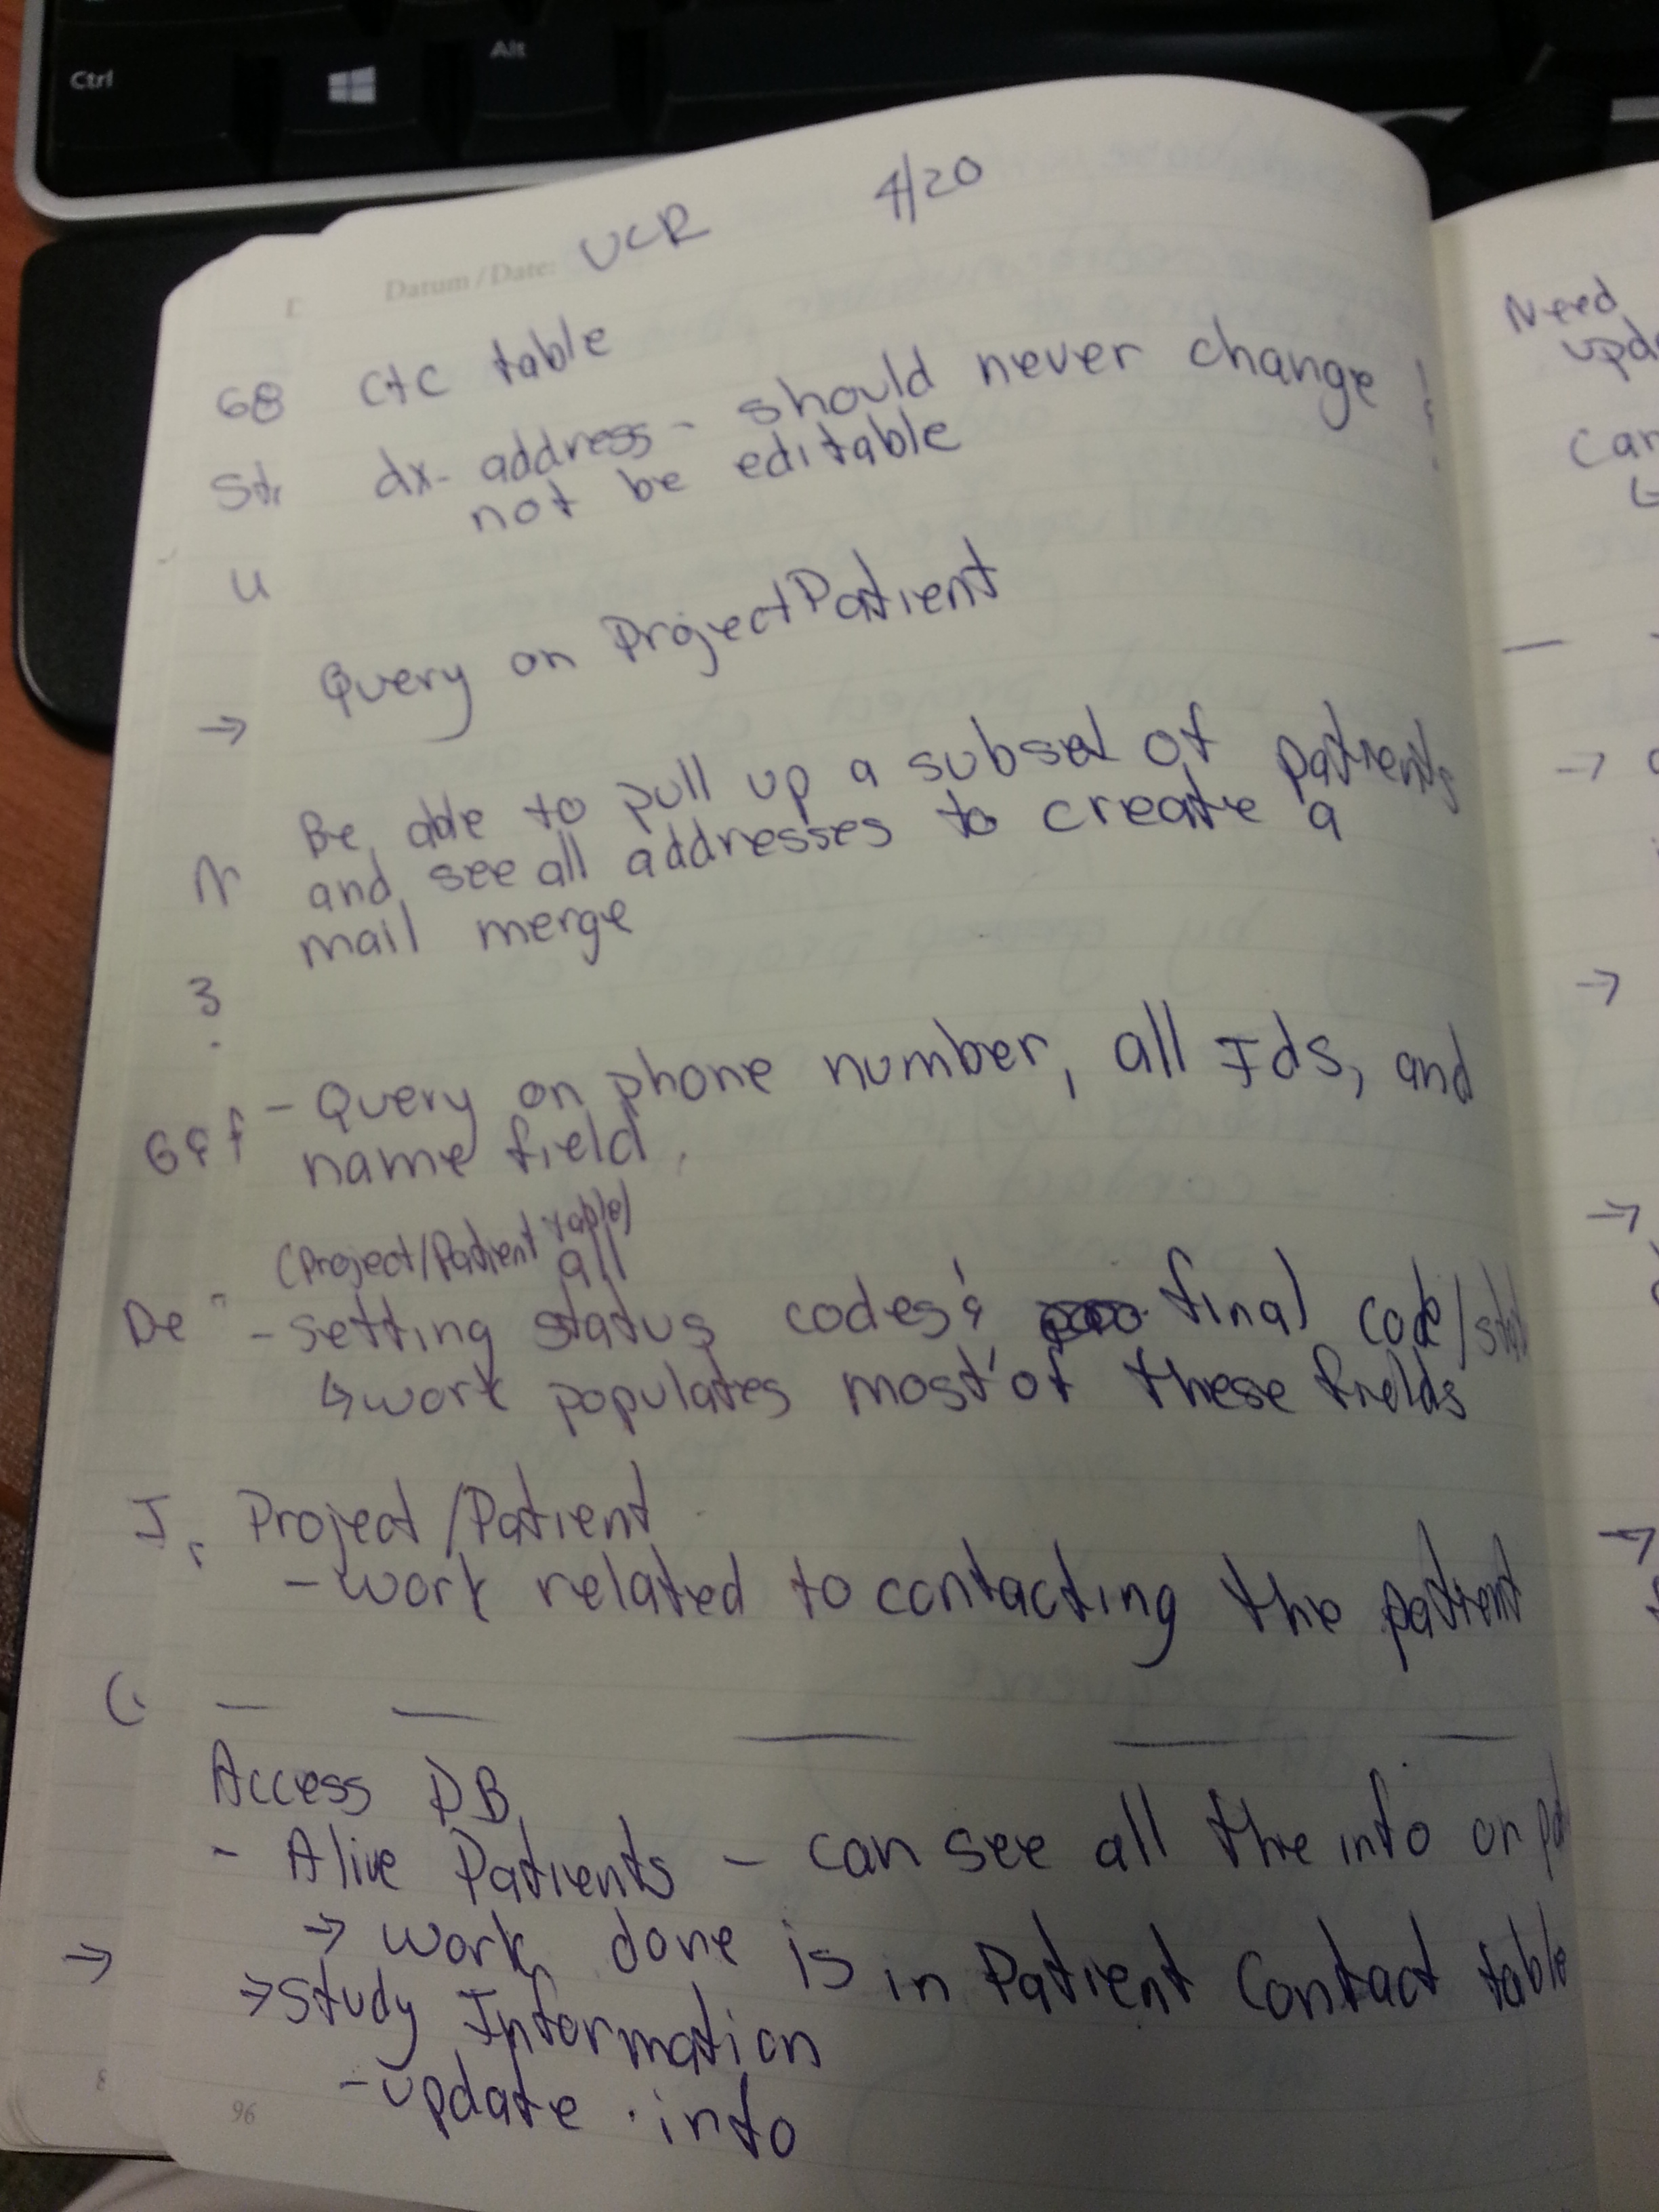 Ctrl
Alt
Datum / Date: UCR 4/20
CtC table
dx- address - should never change!
not be editable
Query on ProjectPatient
Be able to pull up a subset of patients
and see all addresses to create a
mail merge
- Query on phone number, all Ids, and
name field.
(Project/Patient table)
all
- setting status codes & final code/
↳ work populates most of these fields
Project/Patient
- work related to contacting the patient
Access DB
- Alive Patients - can see all the info on
→ work done is in Patient Contact table
→ Study Information
- update info
96
68
St
U
→
3
De
→
Need
→
→
→
→